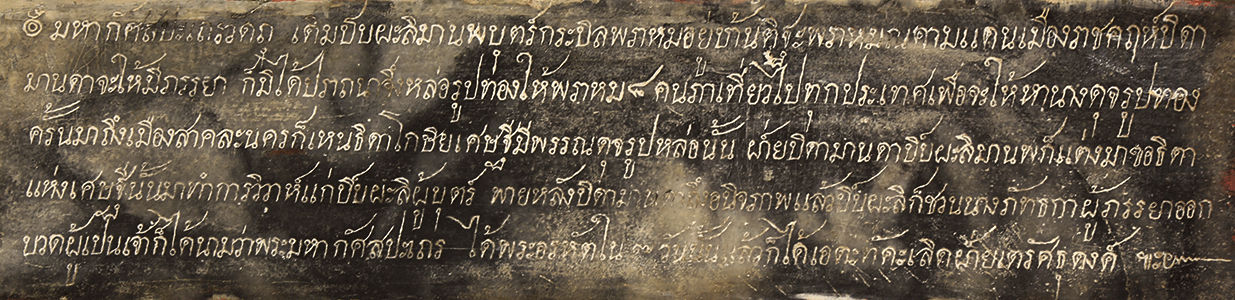 ๏ มหากัศสปะเถรวัตถุ เดิมปิบผะลิมานพบุตร์กระปิลพราหมอยู่บ้านติฐะพราหมณคามแดนเมืองราชคฤห์ปิดา
มานดาจะให้มีภรรยา ก็มิได้ปราถนาจึ่งหล่อรูปทองให้พราหม ๘ คนภาเที่ยวไปทุกประเทศเพื่อจะให้หานางดุจรูปทอง
ครั้นมาถึงเมืองสาคละนครก็เหนธิดาโกษิยเศษฐีมีพรรณดุจรูปหล่อนั้น ฝ่ายปิดามานดาปิบผะลิมานพก็แต่งมาขอธิดา
แห่งเศษฐีนั้นมาทำการวิวาห์แก่ปิบผะลิผู้บุตร์ พายหลังปิดามานดาถึงอนิจภาพแล้วปิบผะลิก็ชวนนางภัททกาผู้ภรรยาออก
บวดผู้เปนเจ้าก็ได้นามว่าพระมหากัศสปเถร ได้พระอรหัตใน ๘ วันนั้น แล้วก็ได้เอตะทัคะเลิดฝ่ายเตรัศธุดงค์